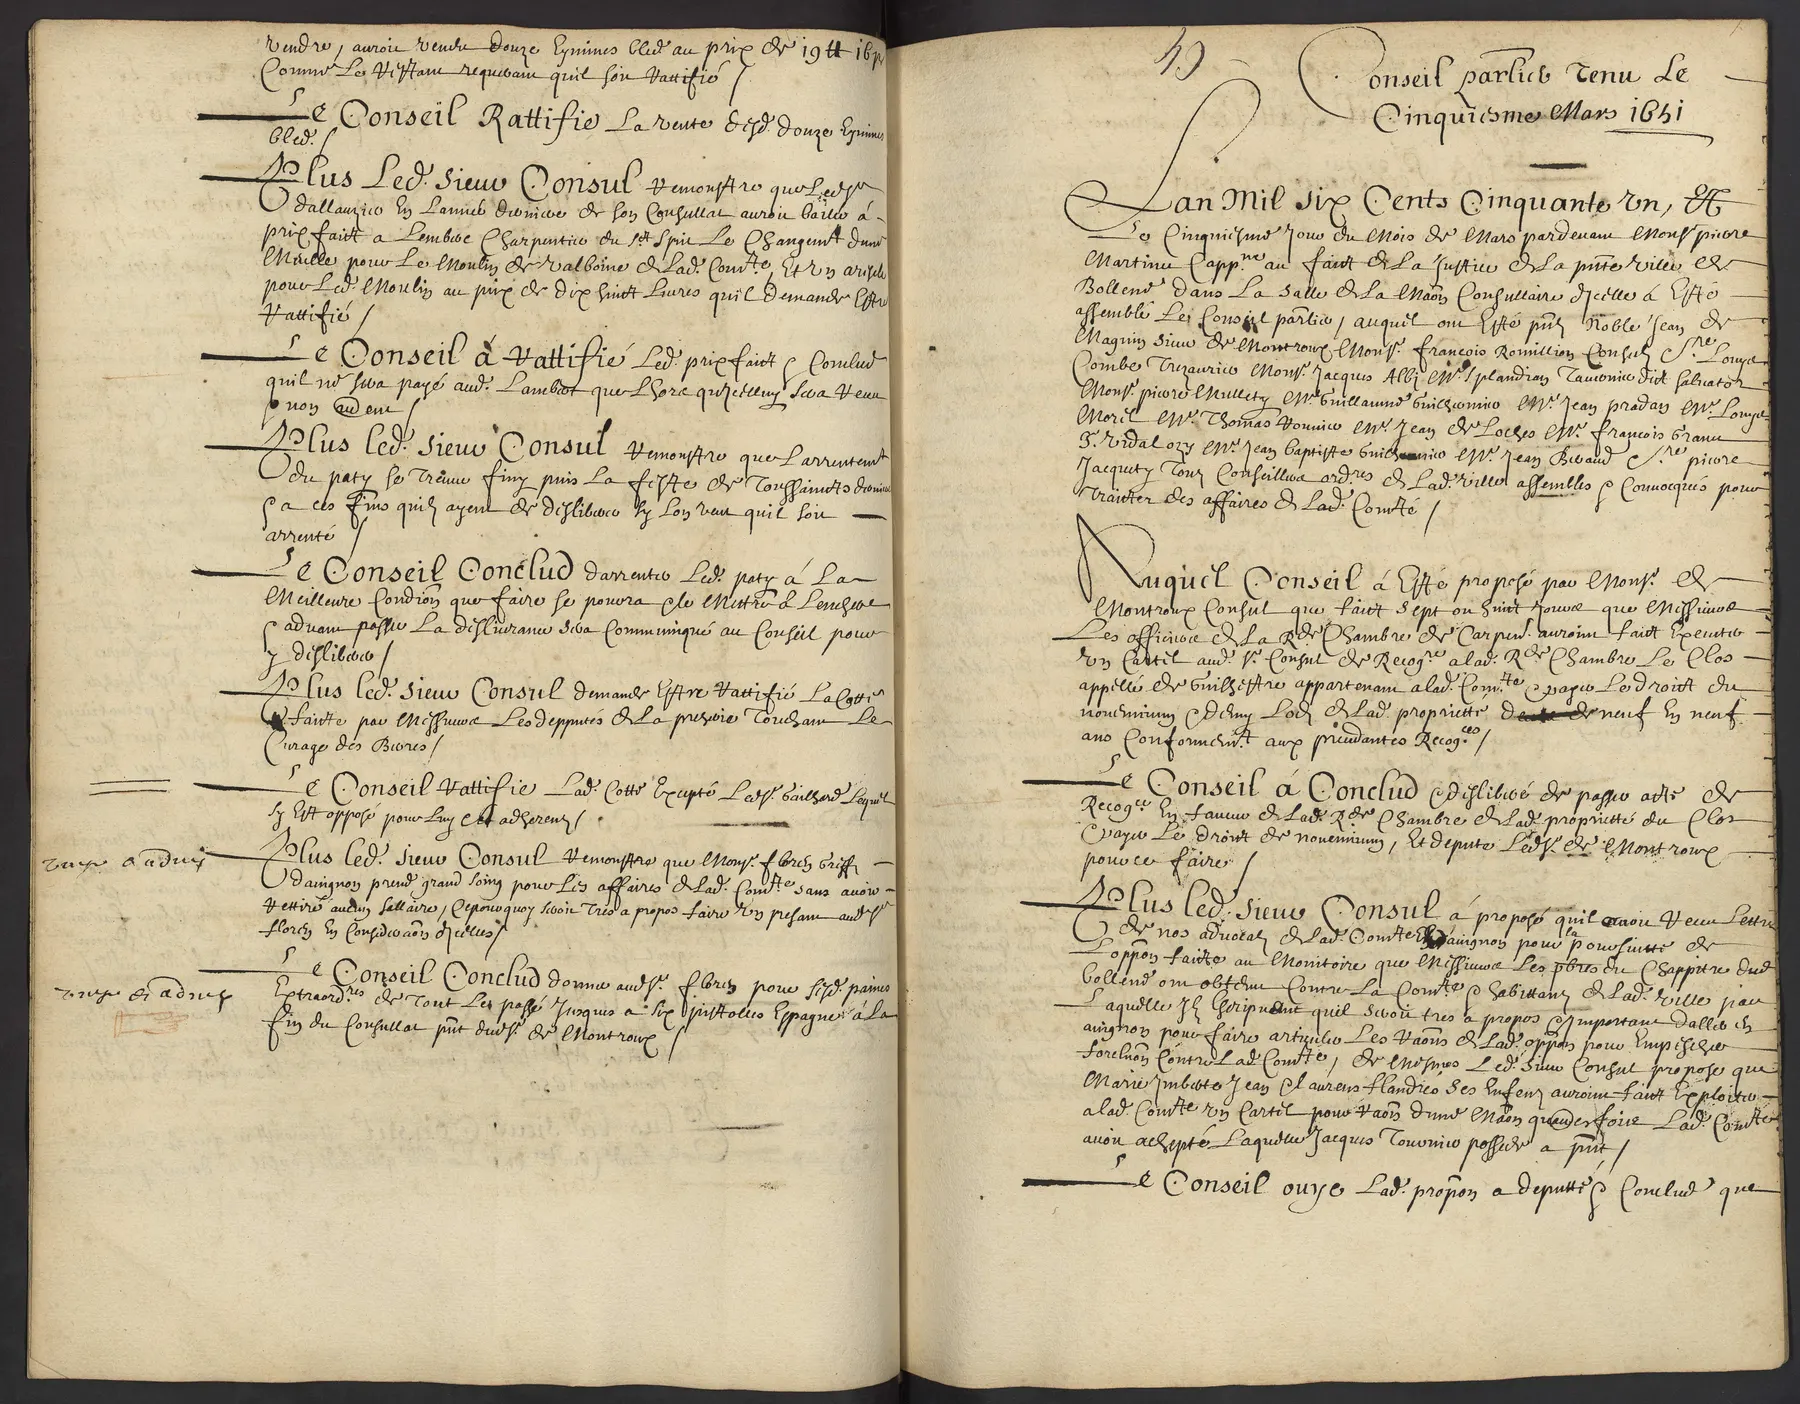 vendre, auroit vendu douze Eymines bled au prix de 19 tt 16 p
Comme Le restant requerant quil soit rattifié /
Le Conseil Rattifie La vente desd. douze Eymines
bled. /
Plus Led. Sieur Consul remonstre que Led Sr
dallauzier En Lannée derniere de son Consullat auroit baillé à
prix faict a Lambert Charpentier du St Sprit Le Changemt dune
Meulle pour Le Moulin de valboine de Lad. Comté, Et un
pour Led. Moulin au prix de dix huict Livres quil demande Estre
rattifié /
Le Conseil á rattifié Led. prix faict & Conclud
quil ne sera payé aud. Lambert que Lhors quicelluy sera venu
& non autrement /
Plus led. Sieur Consul remonstre que Larrentemt
du paty se treuve finy puis La feste de Toussaincts derniere
& a ces fins quilz ayent de desliberer sy Lon veut quil soit
arrenté /
Le Conseil Conclud darrenter Led. paty á La
Meilleure Condiōn que faire se pourra & le Mettre á Lenchere
& advant passer La deslivrance sera Communiqué au Conseil pour
y desliberer /
Plus led. Sieur Consul demande Estre rattifié La Cotte
faicte par Messieurs Les depputés de La presvoie Touchant Le
Curage des Bieres /
Le Conseil rattifie Lad. Cotte Excepté Led Sr. Gaillard Lequel
sy Est opposé pour Luy & adherens /
Plus led. Sieur Consul remonstre que Monsr. floren
davignon prend grand soing pour Les affaires de Lad. Comte sans avoir
rettiré aucun sallaire, Cepourquoy seroit Tres a propos faire un present aud Sr
floren En Consideraōn dicelles /
Le Conseil Conclud donner aud Sr. floren pour sesd. paines
Extraordres de Tout Le passé Jusques a six pistolles Espagne á La
fin du Consullat pnt dud Sr. de Montroux /
49
Conseil particer Tenu Le
Cinquiesme Mars 1651
Lan Mil Six Cents Cinquante un, Et
Le Cinquiesme Jour du Mois de Mars pardevant Monsr pierre
Martinet Cappne au faict de La Justice de La pnte ville de
Bollene dans La Salle de La Maōn Consullaire dicelle á Esté
assemblé Le Conseil particer, auquel ont Esté pntz Noble Jean de
Maguin Sieur de Montroux Monsr. françois Romillion Consulz Sre. Louys
Combe Trezaurier Monsr. Jacques Albi Mr. Splandian Tavernier dict Salvator
Monsr. pierre Millety Mr. Guillaume Guilhermier Mr. Jean pradan Mr. Louys
Morel Mr. Thomas Mr. Jean de Loches Mr. francois Granet
Vidal Mr. Jean Baptiste Guilhermier Mr. Jean Biraud Sre pierre
Jacquety Tous Conseillers ordres de Lad. ville assembles & Convocqués pour
Traicter des affaires de Lad. Comté /
Auquel Conseil á Esté proposé par Monsr. de
Montroux Consul que faict sept ou huict Jours que Messieurs
Les officiers de La Rde Chambre de Carpent. auroint faict Executer
un Cartel aud. Sr. Consul de Recogre a lad. Rde Chambre Le Clos
appellé de Guilhestre appartenant a lad. Comté & payer Le droict du
novennium & demy Lodz de Lad. proprietté de neuf En neuf
ans Conformemt. aux precedantes Recogces /
Le Conseil á Conclud & desliberé de passer acte de
Recogce En faveur de Lad. Rde Chambre de Lad. proprietté du Clos
& payer Le droict de novennium, Et depute Led Sr. de Montroux
pour ce faire /
Plus led. Sieur Consul á proposé quil avoit receu Lettre
de nos advocatz de Lad. Comté davignon pour la poursuitte de
Loppōn faicte au Monitoire que Messieurs Les pbres du Chappitre dud
bollene ont obtenu Contre La Comté & habittans de Lad. ville par
Laquelle Jlz Escripvent quil seroit tres a propos & Jmportant daller en
avignon pour faire articuler Les raōns de Lad. oppōn pour Empescher
forclusion Contre Lad. Comté, de Mesmes Led. Sieur Consul propose que
Marie Jmberte Jean & Laurens flandrés Ses Enfens auroint faict Exploiter
a lad. Comté un Cartel pour raōn dune Maōn quandesfois Lad. Comté
avoit achepté Laquelle Jacques Tavernier possede a pnt /
Le Conseil ouye Lad. propōn a deputté & Conclud que